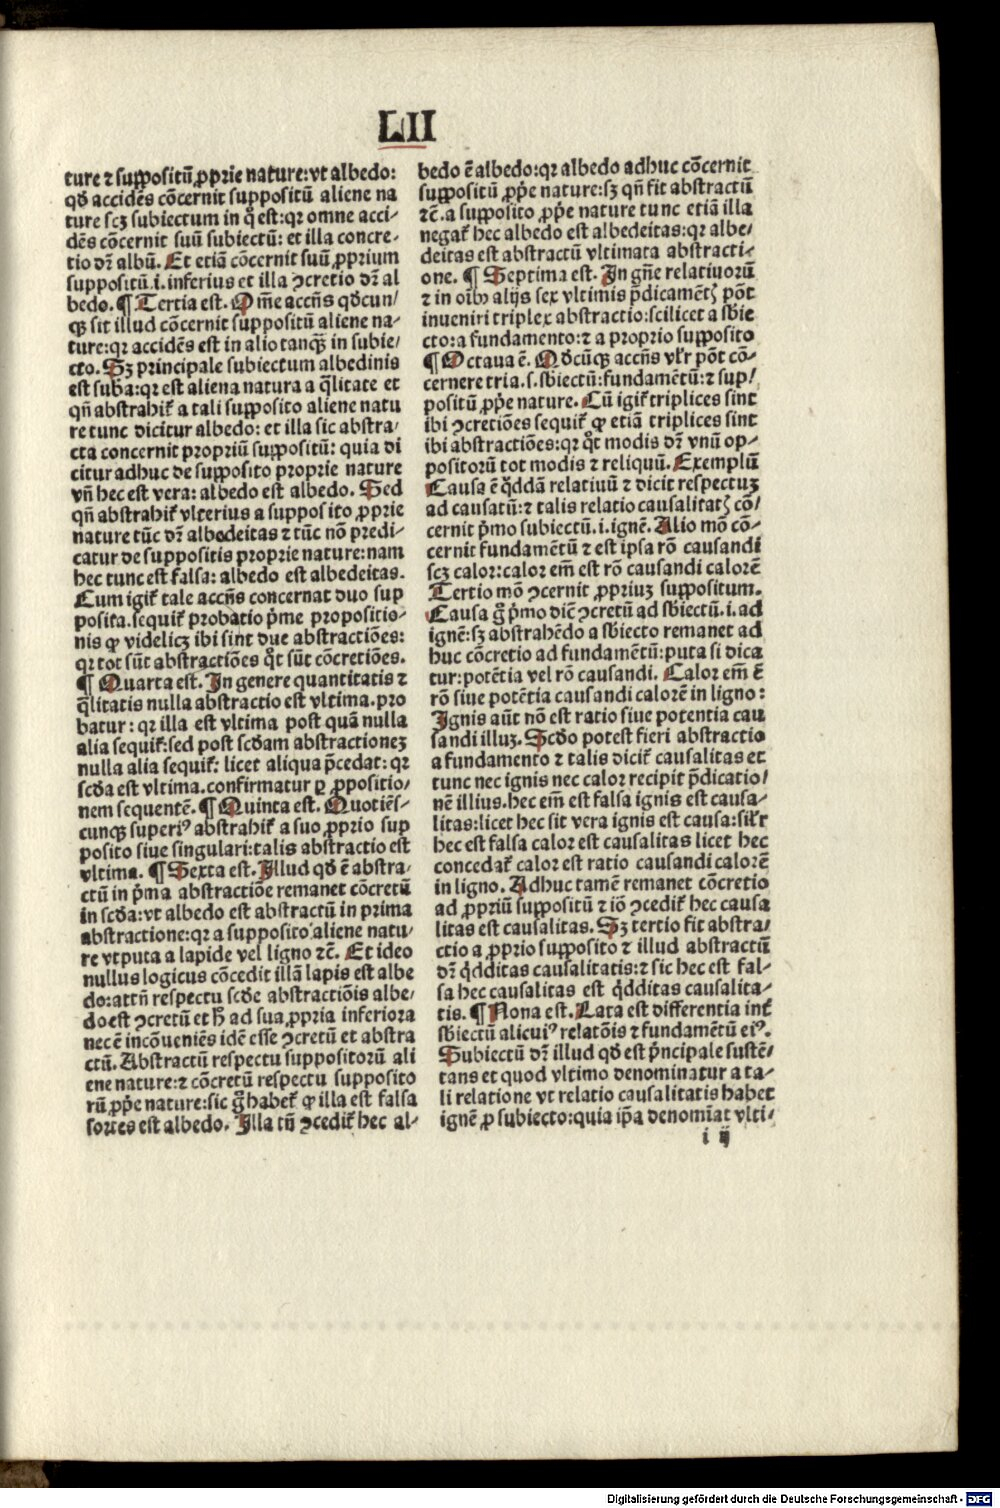 LII
ture ⁊ suppositũ ꝓprie nature: vt albedo:
qđ accidẽs cõcernit suppositũ aliene na
ture scꝫ subiectum in q̊ est: qꝛ omne acci-
dẽs cõcernit suũ subiectũ: et illa concre-
tio dꝛ̃ albũ. Et etiã cõcernit suũ ꝓprium
suppositũ .i. inferius et illa ꝯcretio dꝛ̃ al
bedo. ¶ Tertia est. Om̃e accñs qđcun/
qꝫ sit illud cõcernit suppositũ aliene na-
ture: qꝛ accidẽs est in alio tanqꝫ in subie/
cto. Sꝫ principale subiectum albedinis
est suba: qꝛ est aliena natura a q̃litate et
qñ abstrahit᷑ a tali supposito aliene natu
re tunc dicitur albedo: et illa sic abstra/
cta concernit propriũ suppositũ: quia di
citur adhuc de supposito proprie nature
vñ hec est vera: albedo est albedo. Sed
qñ abstrahit᷑ vlterius a supposito ꝓprie
nature tũc dꝛ̃ albedeitas ⁊ tũc nõ predi-
catur de suppositis proprie nature: nam
hec tunc est falsa: albedo est albedeitas.
Cum igit᷑ tale accñs concernat duo sup
posita. sequit᷑ probatio p̃me propositio-
nis ꝙ videlicꝫ ibi sint due abstractiões:
qꝛ tot sũt abstractiões q̊t sũt cõcretiões.
¶ Quarta est. In genere quantitatis ⁊
q̃litatis nulla abstractio est vltima. pro
batur: qꝛ illa est vltima post quã nulla
alia sequit᷑: sed post scđam abstractionez
nulla alia sequit᷑: licet aliqua p̃cedat: qꝛ
scđa est vltima. confirmatur ꝑ ꝓpositio/
nem sequentẽ. ¶ Quinta est. Quotiẽs-
cunqꝫ superiꝰ abstrahit᷑ a suo ꝓprio sup
posito siue singulari: talis abstractio est
vltima. ¶ Sexta est. Illud qđ ẽ abstra/
ctũ in p̃ma abstractiõe remanet cõcretũ
in scđa: vt albedo est abstractũ in prima
abstractione: qꝛ a supposito aliene natu/
re vtputa a lapide vel ligno ⁊c̃. Et ideo
nullus logicus cõcedit illã lapis est albe
do: attñ respectu scđe abstractiõis albe/
do est ꝯcretũ et ħ ad sua ꝓpria inferiora
nec ẽ incõueniẽs idẽ esse ꝯcretũ et abstra
ctũ. Abstractũ respectu suppositorũ ali
ene nature: ⁊ cõcretũ respectu supposito
rũ ꝓp̃e nature: sic g̊ habet᷑ ꝙ illa est falsa
sortes est albedo. Illa tñ ꝯcedit᷑ hec al-
bedo ẽ albedo: qꝛ albedo adhuc cõcernit
suppositũ ꝓp̃e nature: sꝫ qñ fit abstractũ
⁊c̃. a supposito ꝓp̃e nature tunc etiã illa
negat᷑ hec albedo est albedeitas: qꝛ albe/
deitas est abstractũ vltimata abstracti-
one. ¶ Septima est. In gñe relatiuorũ
⁊ in oĩbꝰ alijs sex vltimis p̃dicamẽtꝭ põt
inueniri triplex abstractio: scilicet a sb̾ie
cto: a fundamento: ⁊ a proprio supposito
¶ Octaua ẽ. Qđcũqꝫ accñs vl̾r põt cõ-
cernere tria .s. sb̾iectũ: fundamẽtũ: ⁊ sup/
positũ ꝓp̃e nature. Cũ igit᷑ triplices sint
ibi ꝯcretiões sequit᷑ ꝙ etiã triplices sint
ibi abstractiões: qꝛ q̊t modis dꝛ̃ vnũ op-
positorũ tot modis ⁊ reliquũ. Exemplũ
Causa ẽ q̊ddã relatiuũ ⁊ dicit respectuꝫ
ad causatũ: ⁊ talis relatio causalitatꝭ cõ/
cernit p̃mo subiectũ .i. ignẽ. Alio mõ cõ-
cernit fundamẽtũ ⁊ est ipsa rõ causandi
scꝫ calor: calor em̃ est rõ causandi calorẽ
Tertio mõ ꝯcernit ꝓpriuꝫ suppositum.
Causa g̊ p̃mo dic̃ ꝯcretũ ad sb̾iectũ .i. ad
ignẽ: sꝫ abstrahẽdo a sb̾iecto remanet ad
huc cõcretio ad fundamẽtũ: puta si dica
tur: potẽtia vel rõ causandi. Calor em̃ ẽ
rõ siue potẽtia causandi calorẽ in ligno:
Ignis aũt nõ est ratio siue potentia cau
sandi illuꝫ. Scđo potest fieri abstractio
a fundamento ⁊ talis dicit᷑ causalitas et
tunc nec ignis nec calor recipit p̃dicatio/
nẽ illius. hec em̃ est falsa ignis est causa-
litas: licet hec sit vera ignis est causa: sil̾r
hec est falsa calor est causalitas licet hec
concedat᷑ calor est ratio causandi calorẽ
in ligno. Adhuc tamẽ remanet cõcretio
ad ꝓpriũ suppositũ ⁊ iõ ꝯcedit᷑ hec causa
litas est causalitas. Sꝫ tertio fit abstra/
ctio a ꝓprio supposito ⁊ illud abstractũ
dꝛ̃ q̊dditas causalitatis: ⁊ sic hec est fal-
sa hec causalitas est q̊dditas causalita-
tis. ¶ Nona est. Lata est differentia int᷑
sb̾iectũ alicuiꝰ relatõis ⁊ fundamẽtũ eiꝰ.
Subiectũ dꝛ̃ illud qđ est p̃ncipale sustẽ/
tans et quod vltimo denominatur a ta-
li relatione vt relatio causalitatis habet
ignẽ ꝓ subiecto: quia ip̃a denomiãt vlti-
i ij
Digitalisierung gefördert durch die Deutsche Forschungsgemeinschaft - DFG